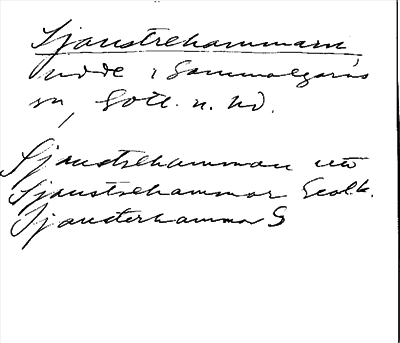 Sjaustrehammarn
udde i Gammalgarns
sn, Gotl. n. hd.
Sjaustrehamman
Sjaustrehammar Geolk.
Sjausterhammar S